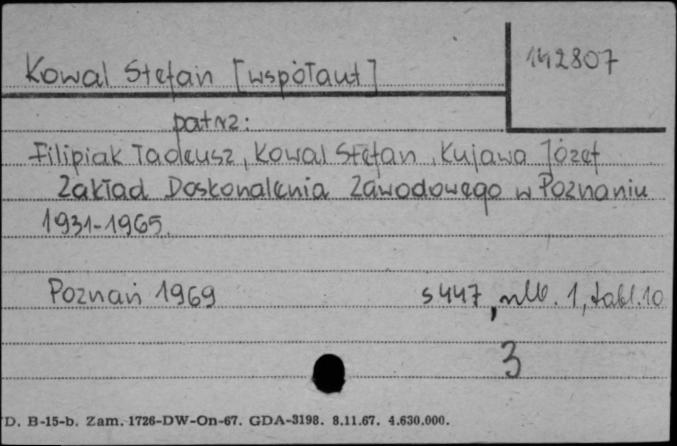 142807
Kowal Stefan [współaut]
patrz:
Filipiak Tadeusz, Kowal Stefan, Kujawa Józef
Zakład Doskonalenia Zawodowego w Poznaniu
1931-1965.
Poznań 1969 s 447, nlb. 1, tabl. 10
3
D. B-15-b. Zam. 1726-DW-On-67. GDA-3198. 8.11.67. 4.630.000.